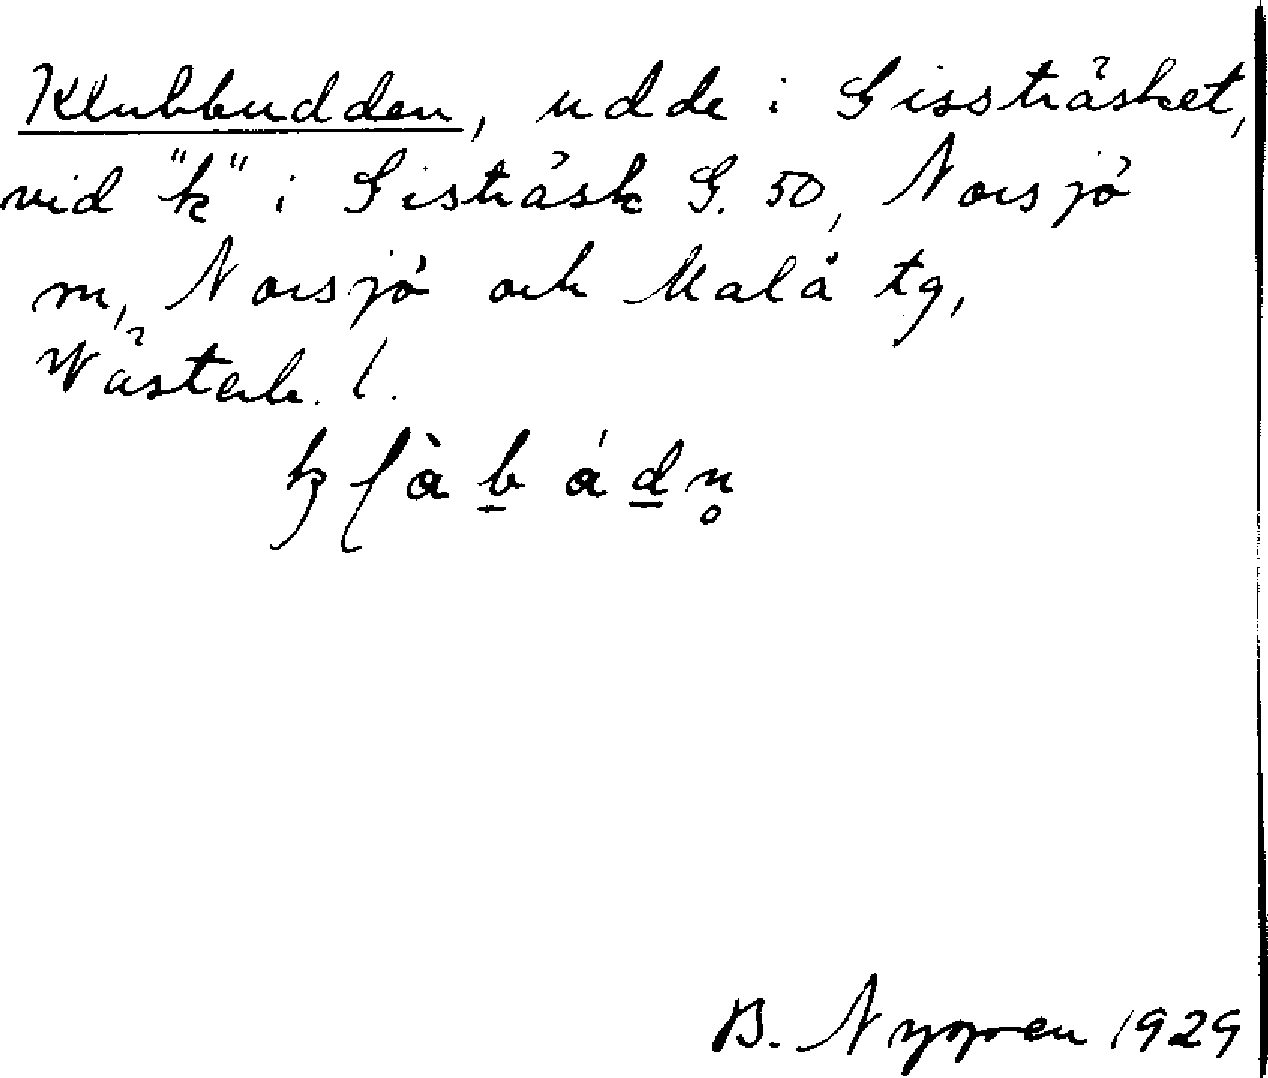 Klubbudden, udde i Gissträsket,
vid "k" i Gisträsk G. 50, Norsjö
m, Norsjö och Malå tg,
Västerb. l.
B. Nygren 1929